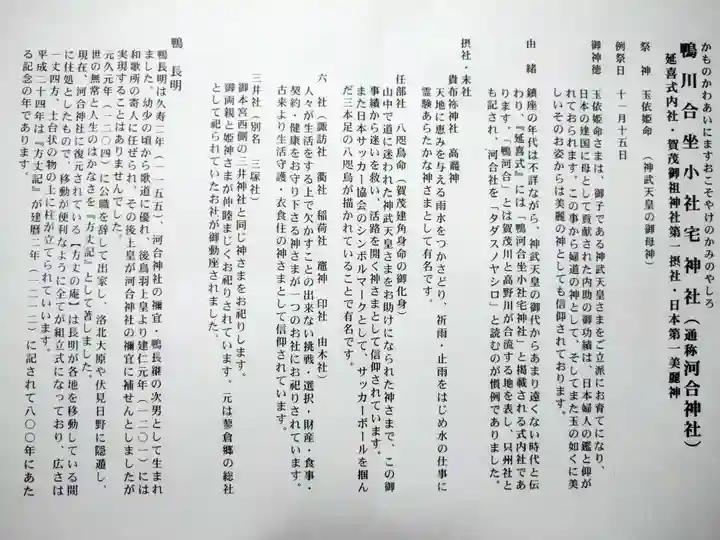 かものかわあいにますおこそやけのかみのやしろ
鴨川合坐小社宅神社（通称河合神社）
延喜式内社・賀茂御祖神社第一摂社・日本第一美麗神
祭　神　玉依姫命　（神武天皇の御母神）
例祭日　十一月十五日
御神徳　玉依姫命さまは、御子である神武天皇さまをご立派にお育てになり、
日本の建国に母として貢献された内助の御功績は、日本婦人の鑑と仰が
れております。この事から婦道の神として、そしてまた玉の如くに美
しいそのお姿からは美麗の神としても信仰されております。
由　緒　鎮座の年代は不詳ながら、神武天皇の御代からあまり遠くない時代と伝
わり、『延喜式』には「鴨河合坐小社宅神社」と掲載される式内社であ
ります。「鴨河合」とは賀茂川と高野川が合流する地を表し、只州社と
も記され、河合社を「タダスノヤシロ」と読むのが慣例でありました。
摂社・末社
貴布祢神社　高龗神
天地に恵みを与える雨水をつかさどり、祈雨・止雨をはじめ水の仕事に
霊験あらたかな神さまとして有名です。
任部社　八咫烏命（賀茂建角身命の御化身）
山中で道に迷われた神武天皇さまをお助けになられた神さまで、この御
事績から迷いを救い、活路を開く神さまとして信仰されています。
また日本サッカー協会のシンボルマークとして、サッカーボールを掴ん
だ三本足の八咫烏が描かれていることで有名です。
六　社（諏訪社　衢社　稲荷社　竈神　印社　由木社）
人々が生活をする上で欠かすことの出来ない挑戦・選択・財産・食事・
契約・健康をお守り下さる神さまが一つのお社にお祀りされています。
古来より生活守護・衣食住の神さまとして信仰されています。
三井社（別名　三塚社）
御本宮西側の三井神社と同じ神さまをお祀りします。
御両親と姫神さまが仲睦まじくお祀りされています。元は蓼倉郷の総社
として祀られていたお社が御動座されました。
鴨　長明
鴨長明は久寿二年（一一五五）、河合神社の禰宜・鴨長継の次男として生まれ
ました。幼少の頃から歌道に優れ、後鳥羽上皇より建仁元年（一二〇一）には
和歌所の寄人に任ぜられ、その後上皇が河合神社の禰宜に補せんとしましたが
実現することはありませんでした。
元久元年（一二〇四）に公職を辞して出家し、洛北大原や伏見日野に隠遁し、
世の無常と人生のはかなさを『方丈記』として著しました。
現在、河合神社に復元されている【方丈の庵】は長明が各地を移動している間
に住処としたもので、移動が便利なように全てが組立式になっており、広さは
一丈四方、土台状の物の上に柱が立てられもいいます。
平成二十四年は『方丈記』が建暦二年（一二一二）に記されて八〇〇年にあた
る記念の年であります。